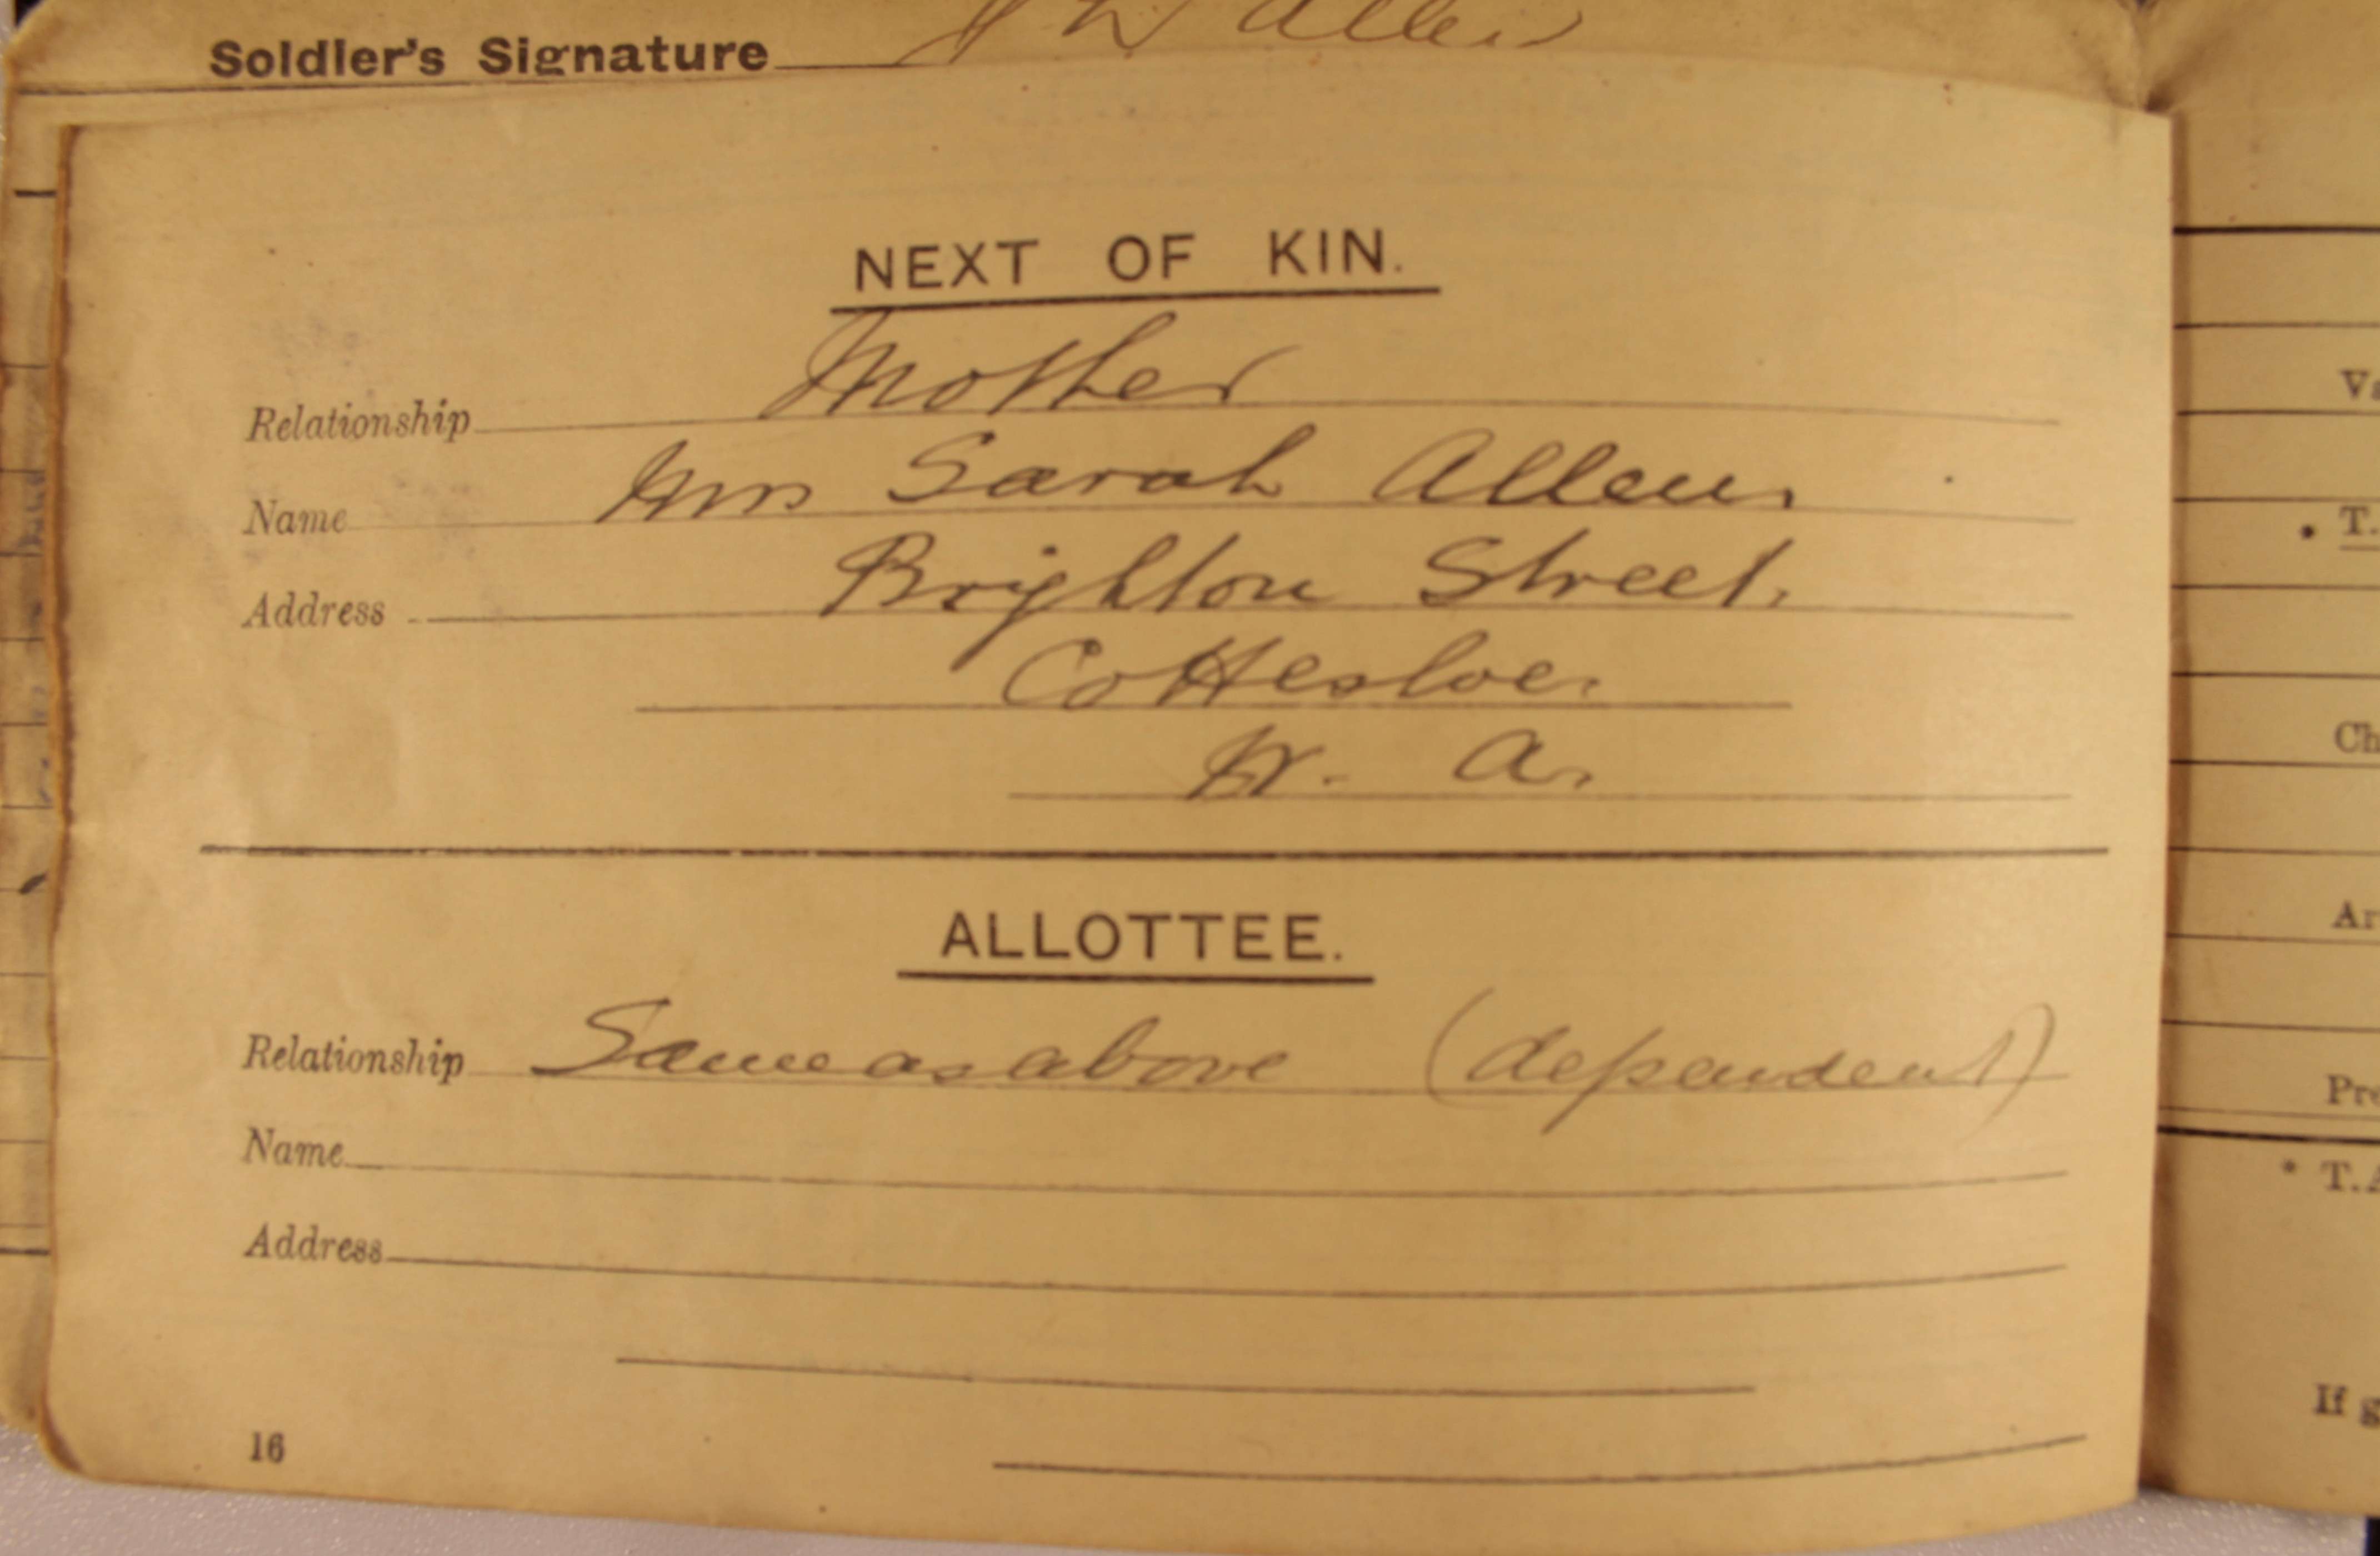 Soldier's Signature Allen
NEXT OF KIN.
Relationship Mother
Name Mrs Sarah Allen,
Address Brighton Street,
Cottesloe.
W. A.
ALLOTTEE.
Relationship Same as above (dependent)
Name
Address
16
T.
* T.A
If g